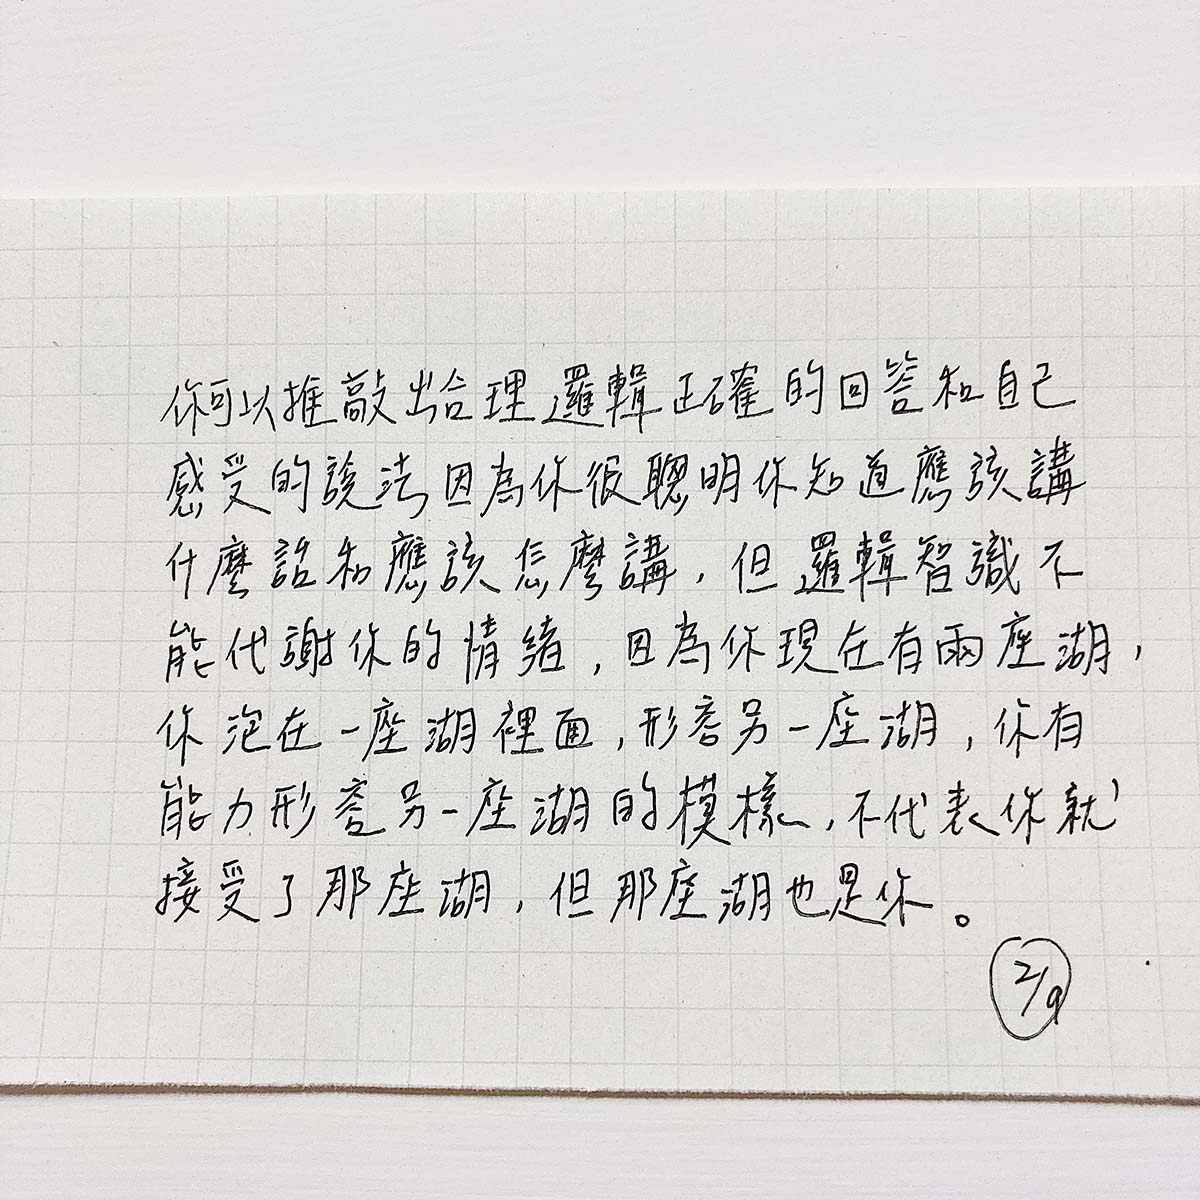 你可以推敲出合理邏輯正確的回答和自己
感受的說法因為你很聰明你知道應該講
什麼話和應該怎麼講，但邏輯智識不
能代謝你的情緒，因為你現在有兩座湖，
你泡在一座湖裡面，形容另一座湖，你有
能力形容另一座湖的模樣，不代表你就
接受了那座湖，但那座湖也是你。
2/9